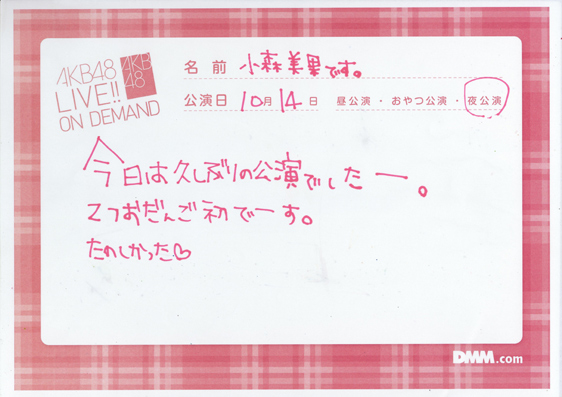 AKB48
LIVE!!
ON DEMAND
AKB
48
名前 小森美果です。
公演日 10月14日 昼公演・おやつ公演・夜公演
今日は久しぶりの公演でしたー。
2つおだんご初でーす。
たのしかった♡
DMM.com